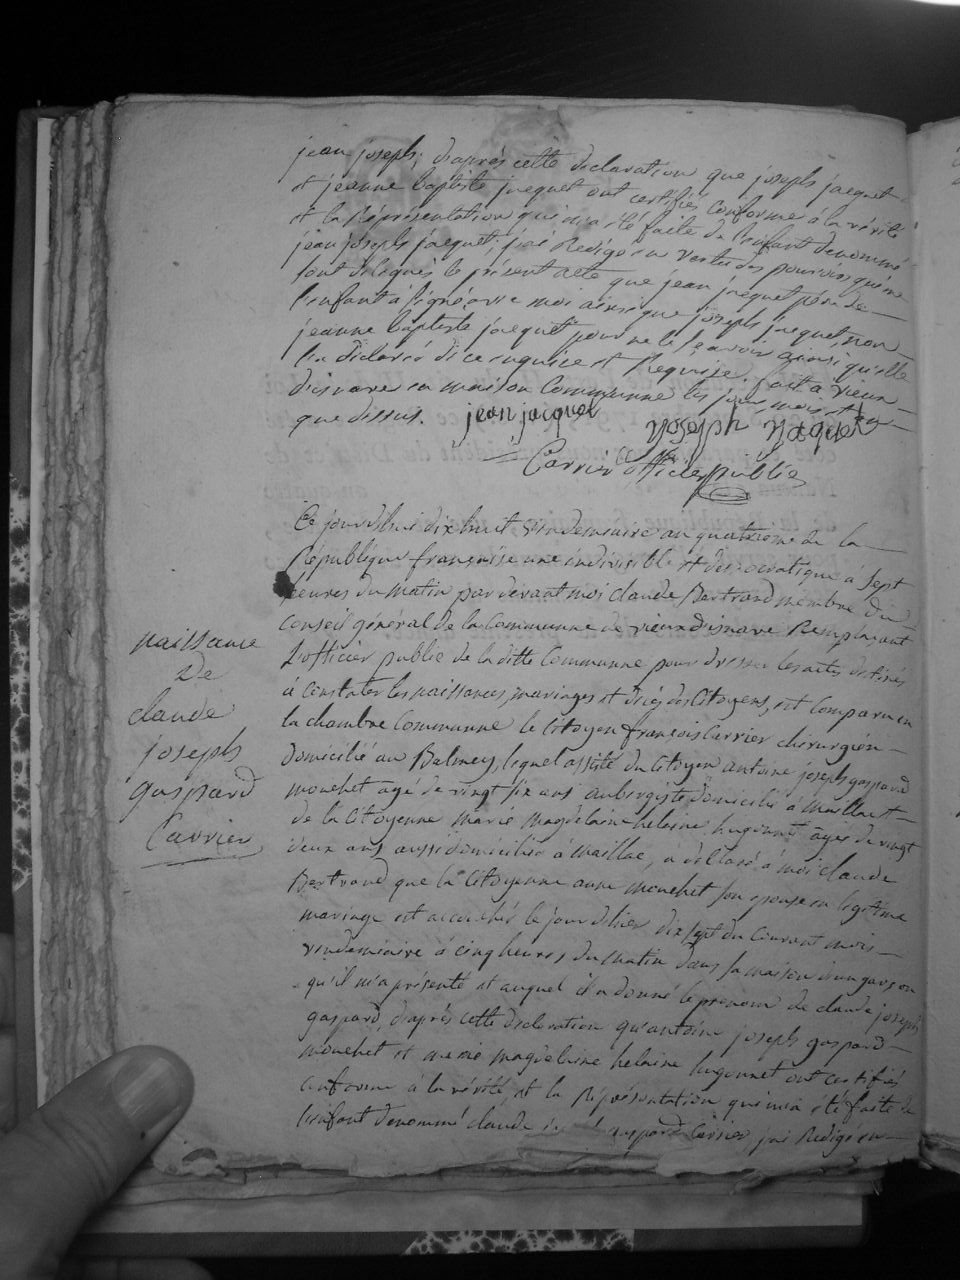 jean joseph, d'aprés cette declaration que joseph jacquet
et jeanne baptiste jacquet ont certifiés conforme á la vérité
et la Représentation qui m'a été faite de l'enfant denommé
jean joseph jacquet, j'ai Redigé en vertu des pouvoirs qui me
sont delegués le présent acte que jean jacquet pére de
l'enfant á signé avec moi ainsi que joseph jacquet, non
jeanne baptiste jacquet pour ne le sçavoir ainsi qu'elle
l'a déclaré de ce enquise et Requise, fait á vieux
d'isnave en maison Commune les jour, mois et an
que dessus. jean jacquet
joseph jaquet
Carrier officier public
Ce jourd'hui dix huit vendemiaire an quatriéme de la
République française une indivisible et democratique á sept
heures du matin par devant moi claude Bertrand membre du
Conseil général de la Commune de vieux d'isnave Remplaçant
L'officier public de la ditte Commune pour dresser les actes destinés
á constater les naissances, mariages et décés des Citoyens, est comparu en
la chambre Commune le Citoyen françois Carrier chirurgien
domicilié au Balmey, lequel assisté du Citoyen antoine joseph gaspard
mouchet age de vingt six ans aubergiste domicilié á maillat
de la Citoyenne marie magdelaine helaine hugonnet âgée de vingt
deux ans aussi domiciliée á maillac, a déclaré á moi claude
Bertrand que la Citoyenne anne mouchet son epouse en légitime
mariage est accouchée le jour d'hier dix sept du Courant mois
vendemiaire á cinq heures du matin dans sa maison d'un garçon
qu'il m'a présenté et auquel il a donné le prenom de claude joseph
gaspard, d'aprés cette declaration qu'antoine joseph gaspard
mouchet et marie magdelaine helaine hugonnet ont certifiés
conforme á la vérité, et la Représentation qui m'a été faite de
l'enfant denommé claude gaspard Carrier, j'ai Redigé en
naissance
De
claude
joseph
gaspard
Carrier